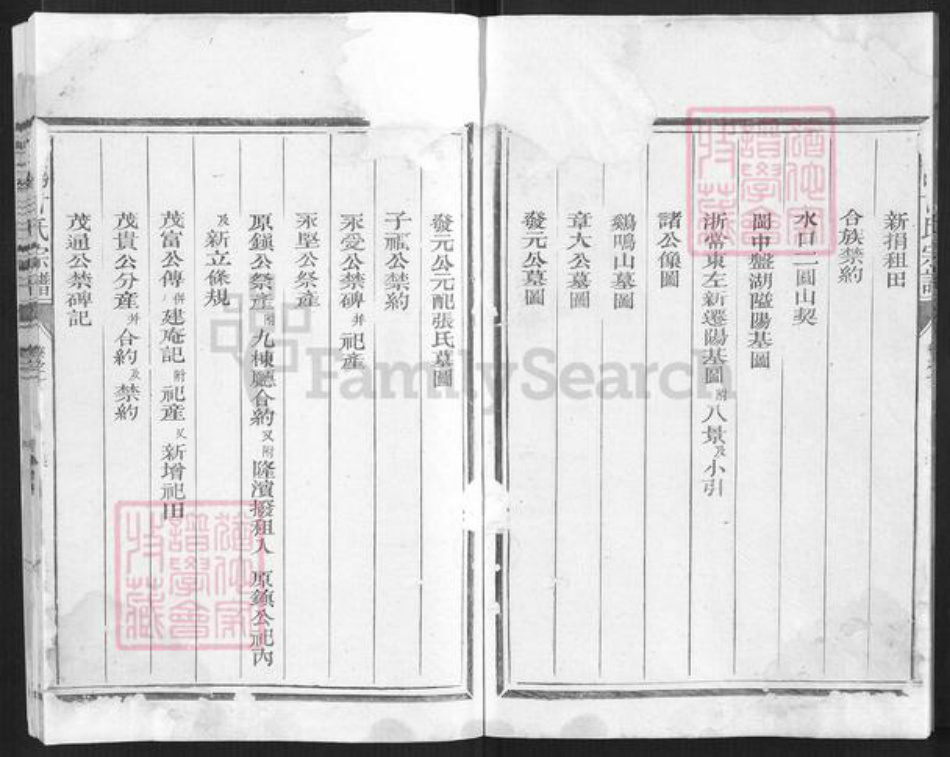 新捐租田
合族禁約
水口二圓山契
圖中盤湖隘陽基圖
浙常東左新遷陽基圖附八景及小引
諸公像圖
鷄鳴山墓圖
章大公墓圖
發元公墓圖
發元公元配張氏墓圖
子福公禁約
永愛公禁碑并祀產
永堅公祭產
原鎮公祭產附九棟廳合約又附隆濱撥租入原鎮公祀內
及新立條規
茂富公傳併建庵記附祀產又新增祀田
茂貴公分產并合約及禁約
茂通公禁碑記
氏宗譜
FamilySearch